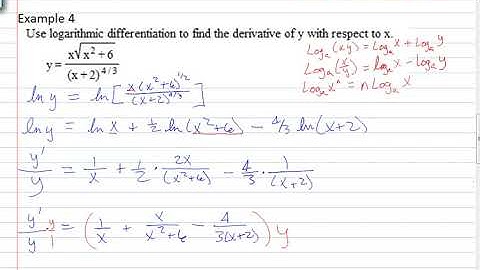 Example 4
Use logarithmic differentiation to find the derivative of y with respect to x.
y = x√(x² + 6) / (x + 2)^(4/3)
Log_a (xy) = Log_a x + Log_a y
Log_a (x/y) = log_a x - log_a y
Log_a x^n = n Log_a x
ln y = ln [ x(x² + 6)^(1/2) / (x+2)^(4/3) ]
ln y = ln x + 1/2 ln(x² + 6) - 4/3 ln(x+2)
y'/y = 1/x + 1/2 · 2x/(x² + 6) - 4/3 · 1/(x+2)
y'/y · y/1 = ( 1/x + x/(x² + 6) - 4/(3(x+2)) ) y